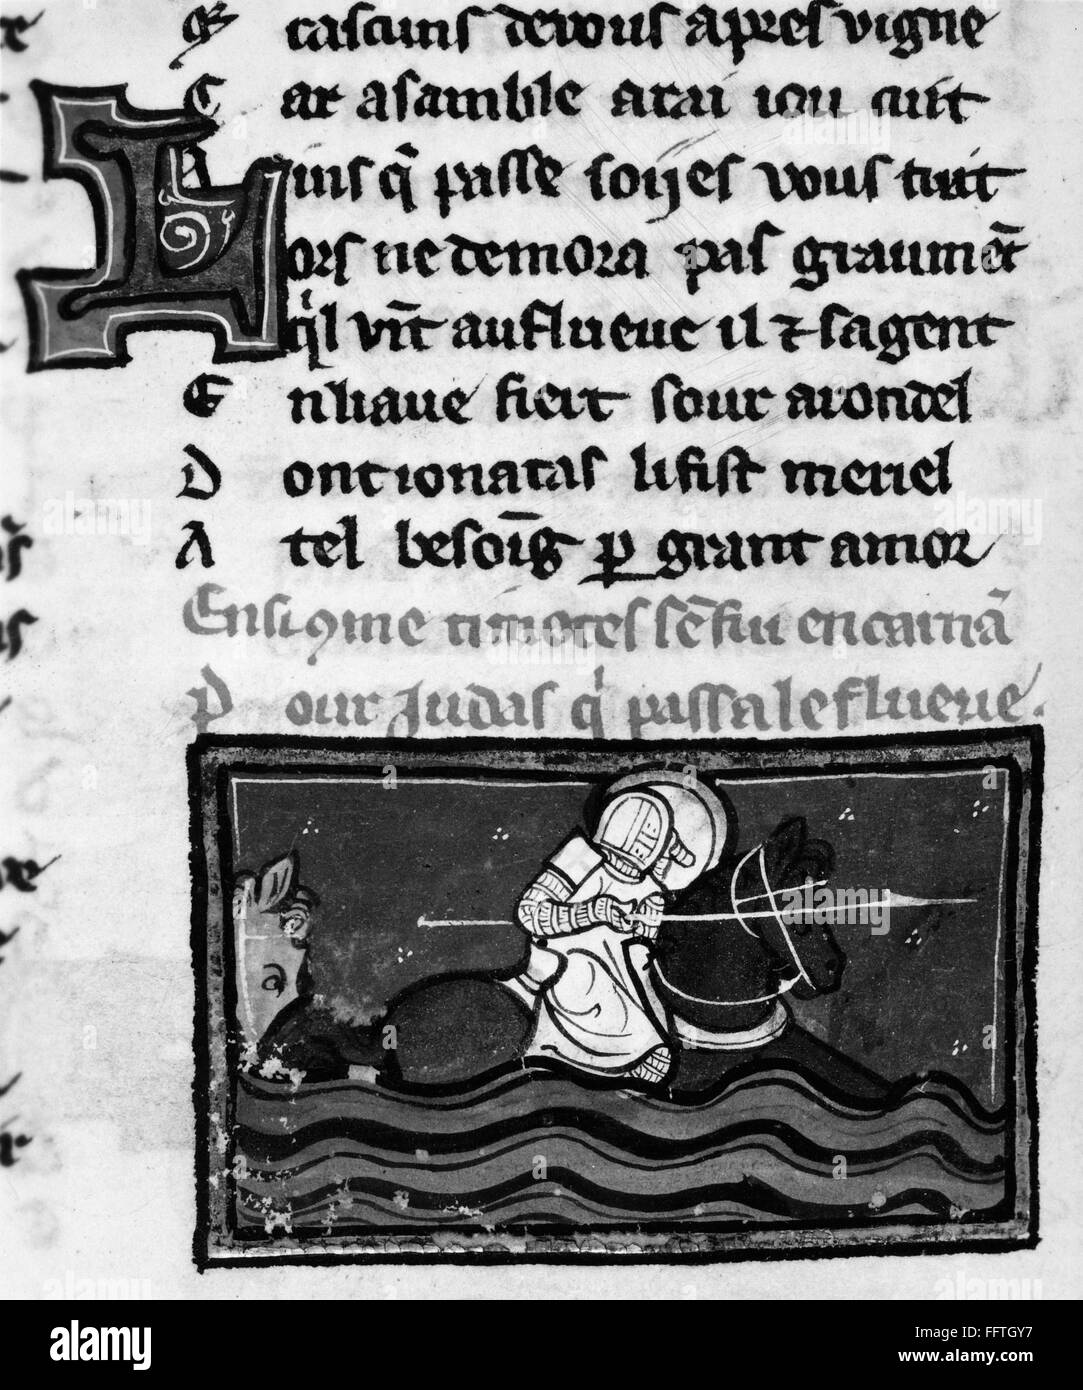 E cascuns devous apres vigne
C ar asamble arai iou cuit
A ius q̃ passe soijes vous tuit
Lors ne demora pas graumẽt
q̃l vĩt au flueue il ⁊ sa gent
E nliaue fiert sour arondel
D ont ionatas li fist meriel
A tel besoĩg ꝑ grant amor
Ensi ꝯme timotes sẽfiu encarriã
P our Judas q̃ passa le flueue.
alamy
Image ID: FFTGY7
www.alamy.com